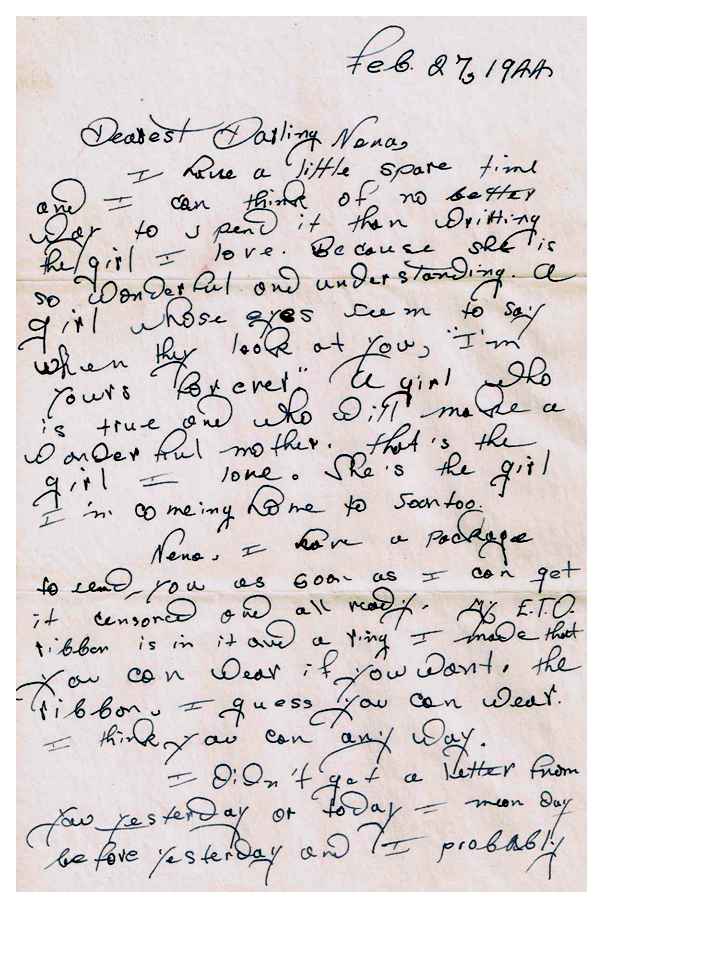 Feb. 27, 1944
Dearest Darling Nena,
I have a little spare time
and I can think of no better
way to spend it than writting
the girl I love. Because she is
so wonderful and understanding. A
girl whose eyes seem to say
when they look at you, "I'm
yours forever." A girl who
is true and who will make a
wonderful mother. that is the
girl I love. She's the girl
I'm comeing home to soon too.
Nena, I have a package
to send you as soon as I can get
it censored and all ready. My E.T.O.
ribbon is in it and a ring I made that
you can wear if you want. the
ribbon, I guess you can wear.
I think you can any way.
I didn't get a letter from
you yesterday or today I mean day
before yesterday and I probably